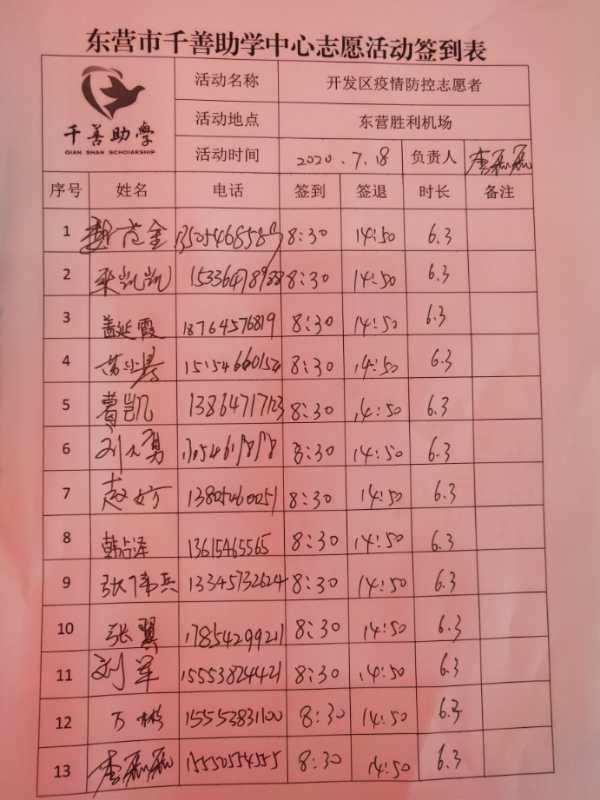 东营市千善助学中心志愿活动签到表
千善助学
QIAN SHAN SCHOLARSHIP
活动名称 开发区疫情防控志愿者
活动地点 东营胜利机场
活动时间 2020.7.18 负责人 李磊磊
序号 姓名 电话 签到 签退 时长 备注
1 8:30 14:50 6.3
2 梁凯凯 8:30 14:50 6.3
3 盖延霞 18764576819 8:30 14:50 6.3
4 8:30 14:50 6.3
5 葛凯 13864717123 8:30 14:50 6.3
6 8:30 14:50 6.3
7 赵婷 8:30 14:50 6.3
8 韩占泽 13615465565 8:30 14:50 6.3
9 张伟兵 13345732624 8:30 14:50 6.3
10 张翼 17854299211 8:30 14:50 6.3
11 刘军 15553824421 8:30 14:50 6.3
12 万彬 15553831100 8:30 14:50 6.3
13 李磊磊 15550554555 8:30 14:50 6.3